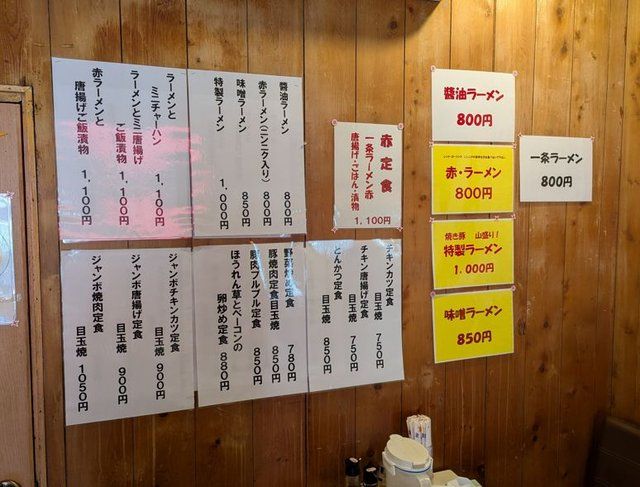 醤油ラーメン 800円
赤ラーメン(ニンニク入り) 800円
味噌ラーメン 850円
特製ラーメン 1,000円
ラーメンと
ミニチャーハン 1,100円
ラーメンとミニ唐揚げ
ご飯漬物 1,100円
赤ラーメンと
唐揚げご飯漬物 1,100円
赤定食
一条ラーメン赤
唐揚げ・ごはん・漬物
1,100円
醬油ラーメン
800円
赤・ラーメン
800円
焼き豚 山盛り!
特製ラーメン
1,000円
味噌ラーメン
850円
一条ラーメン
800円
チキンカツ定食 750円
チキン唐揚げ定食
目玉焼 750円
とんかつ定食
目玉焼 850円
野菜炒め定食 780円
豚焼肉定食目玉焼 850円
豚肉プルプル定食 850円
ほうれん草とベーコンの
卵炒め定食 880円
ジャンボチキンカツ定食
目玉焼 900円
ジャンボ唐揚げ定食
目玉焼 900円
ジャンボ焼肉定食
目玉焼 1050円